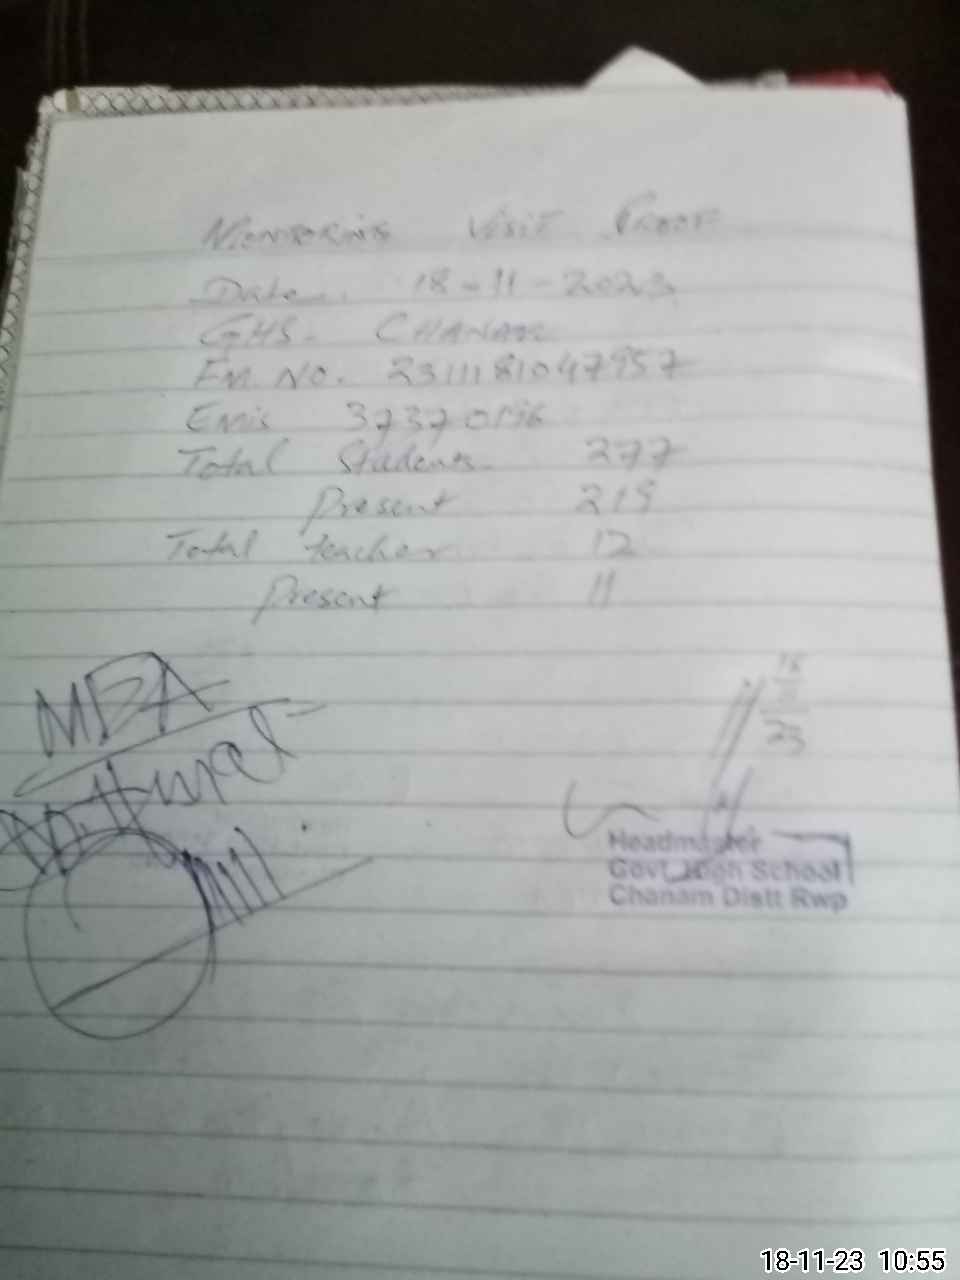 Monitoring Visit Proof
Date. 18-11-2023
GHS. CHANAM
Fm. No. 2311181047957
Emis 37370196
Total Students 277
Present 219
Total teacher 12
Present 11
MEA
18
11
23
Headmaster
Govt. High School
Chanam Distt Rwp
18-11-23 10:55